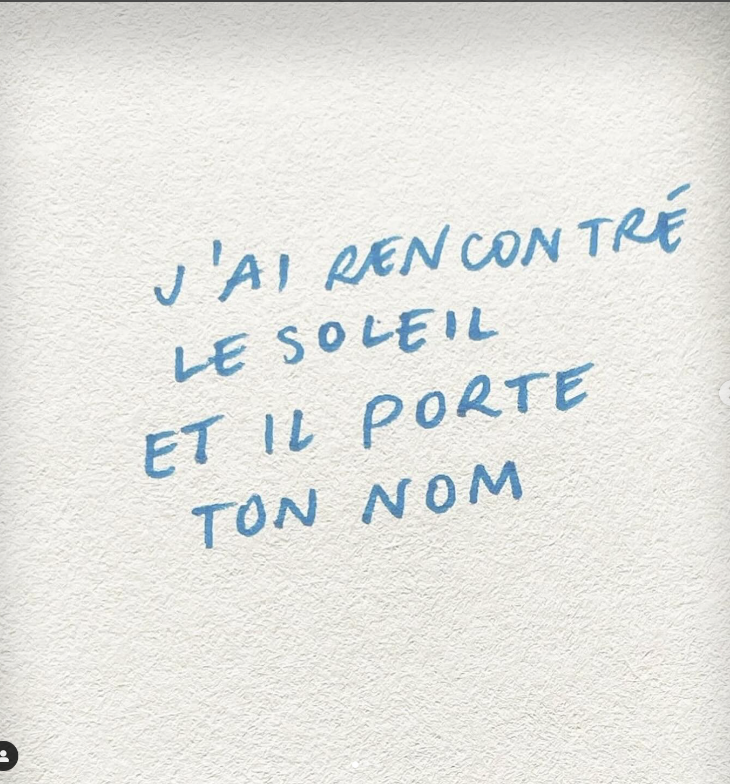 J'AI RENCONTRÉ
LE SOLEIL
ET IL PORTE
TON NOM